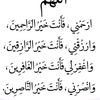 اللهم
ارحمني، فأنت خير الراحمين،
وارزقني، فأنت خير الرازقين،
واغفر لي، فأنت خير الغافرين،
وانصرني، فأنت خير الناصرين